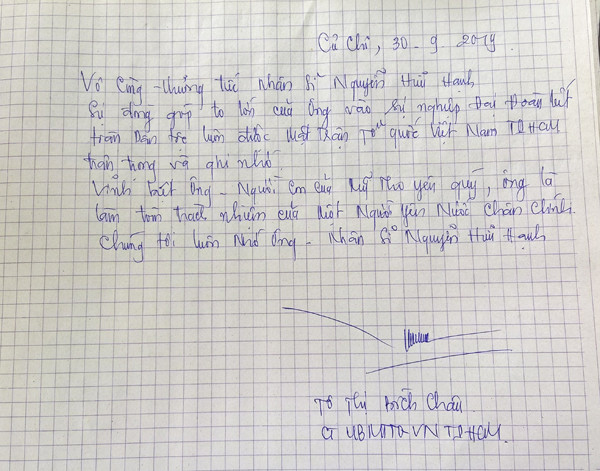 Củ Chi, 30-9-2019.
Vô Cùng thương tiếc Nhân Sĩ Nguyễn Hữu Hạnh
Sự đóng góp to lớn của Ông vào Sự nghiệp Đại Đoàn kết
toàn Dân tộc luôn được Mặt trận Tổ quốc Việt Nam TPHCM
trân trọng và ghi nhớ.
Vĩnh biệt Ông - Người em của Mỹ Tho yêu quý, ông là
làm tròn trách nhiệm của Một Người yêu Nước Chân Chính.
Chúng tôi luôn Nhớ Ông - Nhân Sĩ Nguyễn Hữu Hạnh
Tô Thị Bích Châu
CT UBMTTQVN TPHCM.